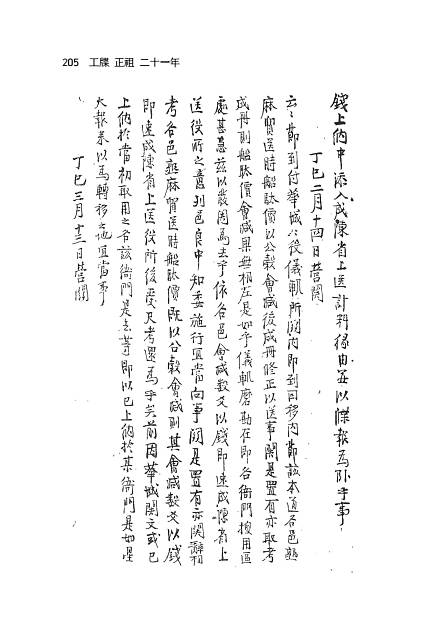 205 工牒 正祖 二十一年
錢上納中添入成陳省上送計料緣由並以牒報爲卧乎事
丁巳二月十四日營關
云云節到付華城以役儀軌所關內即到回移內節該本道各邑熟
麻貿送時船馱價以公穀會減後成冊修正以送事關是置有亦取考
成冊則船馱價會減果無相左是如乎儀軌磨勘在即各衙門換用區
處甚急玆以發關爲去乎依各邑會減數爻以錢即速成陳省上
送役所之意列邑良中知委施行宜當向事關是置有亦關辭相
考各邑熟麻貿送時船馱價既以公穀會減則其會減數爻以錢
即速成陳省上送役所後爻尺考還爲乎矣前因華城關文或已
上納於當初取用之各該衙門是去等即以已上納於某衙門是如星
火報來以爲轉移之地宜當事
丁巳三月十三日營關